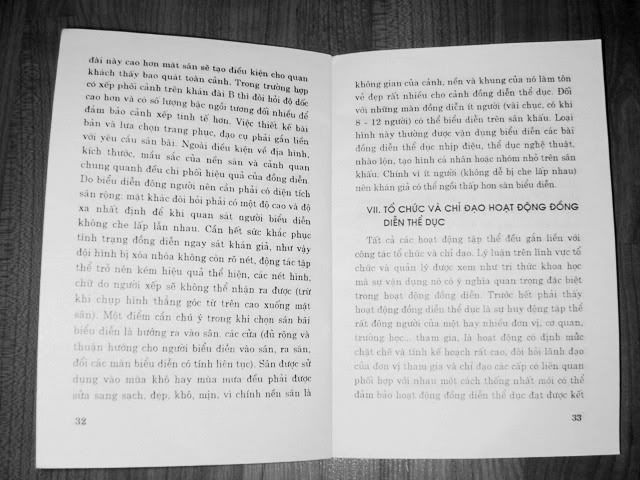 đài này cao hơn mặt sân sẽ tạo điều kiện cho quan
khách thấy bao quát toàn cảnh. Trong trường hợp
có xếp phối cảnh trên khán đài B thì đòi hỏi độ dốc
cao hơn và có số lượng bậc ngồi tương đối nhiều để
đảm bảo cảnh xếp tinh tế hơn. Việc thiết kế bài
bản và lựa chọn trang phục, đạo cụ phải gắn liền
với yêu cầu sân bãi. Ngoài điều kiện về địa hình,
kích thước, mầu sắc của nền sân và cảnh quan
chung quanh đều chi phối hiệu quả của đồng diễn.
Do biểu diễn động người nên cần phải có diện tích
sân rộng; mặt khác đòi hỏi phải có một độ cao và độ
xa nhất định để khi quan sát người biểu diễn
không che lấp lẫn nhau. Cần hết sức khắc phục
tình trạng đồng diễn ngay sát khán giả, như vậy
đội hình bị xóa nhòa không còn rõ nét, động tác tập
thể trở nên kém hiệu quả thể hiện, các nét hình,
chữ do người xếp sẽ không thể nhận ra được (trừ
khi chụp hình thẳng góc từ trên cao xuống mặt
sân). Một điểm cần chú ý trong khi chọn sân bãi
biểu diễn là hướng ra vào sân, các cửa (đủ rộng và
thuận hướng cho người biểu diễn vào sân, ra sân,
đổi các màn biểu diễn có tính liên tục). Sân được sử
dụng vào mùa khô hay mùa mưa đều phải được
sửa sang sạch, đẹp, khô, mịn, vì chính nền sân là
32
không gian của cảnh, nền và khung của nó làm tôn
vẻ đẹp rất nhiều cho cảnh đồng diễn thể dục. Đối
với những màn đồng diễn ít người (vài chục, có khi
8 - 12 người) có thể biểu diễn trên sân khấu. Loại
hình này thường được vận dụng biểu diễn các bài
đồng diễn thể dục nhịp điệu, thể dục nghệ thuật,
nhào lộn, tạo hình cá nhân hoặc nhóm nhỏ trên sân
khấu. Chính vì ít người (không dễ bị che lấp nhau)
nên khán giả có thể ngồi thấp hơn sân biểu diễn.
VII. TỔ CHỨC VÀ CHỈ ĐẠO HOẠT ĐỘNG ĐỒNG
DIỄN THỂ DỤC
Tất cả các hoạt động tập thể đều gắn liền với
công tác tổ chức và chỉ đạo. Lý luận trên lĩnh vực tổ
chức và quản lý được xem như tri thức khoa học
mà sự vận dụng nó có ý nghĩa quan trọng đặc biệt
trong hoạt động đồng diễn. Trước hết phải thấy
hoạt động đồng diễn thể dục là sự huy động tập thể
rất đông người của một hay nhiều đơn vị, cơ quan,
trường học... tham gia, là hoạt động có định mức
chặt chẽ và tính kế hoạch rất cao, đòi hỏi lãnh đạo
của đơn vị tham gia và chỉ đạo các cấp có liên quan
phối hợp với nhau một cách thống nhất mới có thể
đảm bảo hoạt động đồng diễn thể dục đạt được kết
33